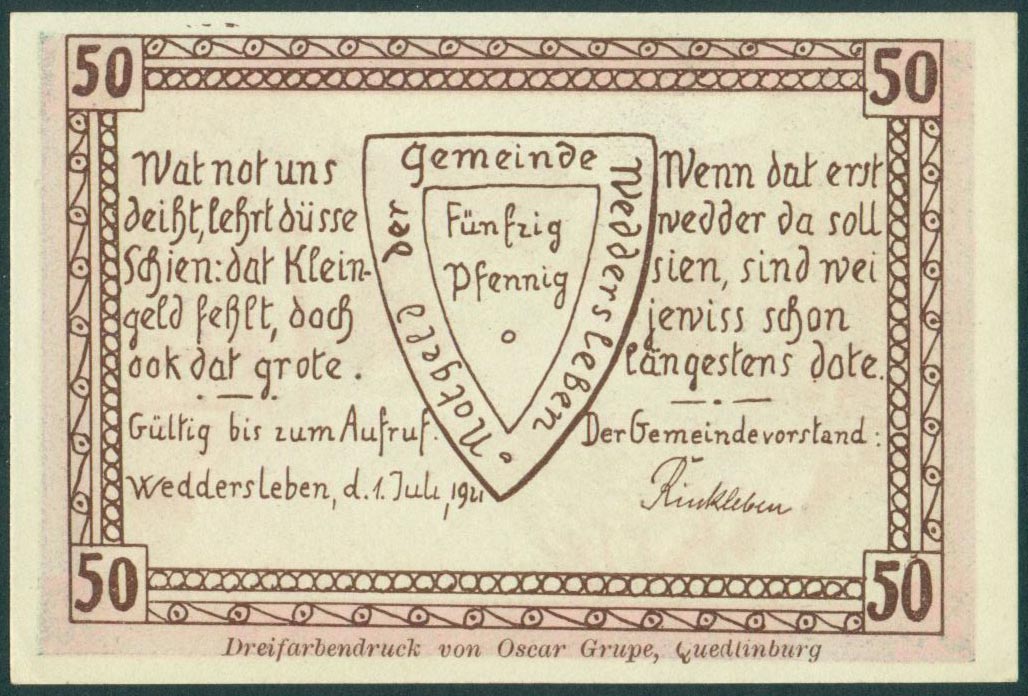 50
50
Wat not uns
deiht, lehrt düsse
Schien: dat Klein-
geld fehlt, doch
ook dat grote.
Notgeld der Gemeinde Weddersleben
Fünfzig
Pfennig
Wenn dat erst
wedder da soll
sien, sind wei
jewiss schon
längestens dote.
Gültig bis zum Aufruf.
Weddersleben, d. 1. Juli 1921
Der Gemeindevorstand:
Rinkleben
50
50
Dreifarbendruck von Oscar Grupe, Quedlinburg